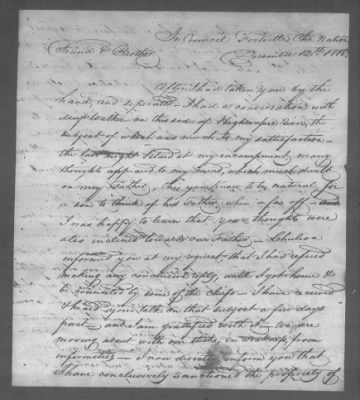 In Council Fortville Che. Nation
December 12th 1818.
Friend & Brother
After I had taken you by the
hand, and separated I had a conversation with
on this side of Highwassee River, the
subject of which was much to my satisfaction
the last night I staid at my encampment, many
thought app to my mind, which much dwelt
on my Father. This you know to be natural, for
a son to think of his Father, when afar off —
I was happy to learn that your thoughts were
also inclined towards our Father —
informed you at my request that I had refused
making any conclusive reply, until I got home &
be counciled by some of the chiefs — I have received
& heard your talk on that subject a few days
past — and I am gratified with it — We are
moving about with our sticks, in weakness from
infirmities — I now directly inform you that
I have conclusively sanctioned the propriety of